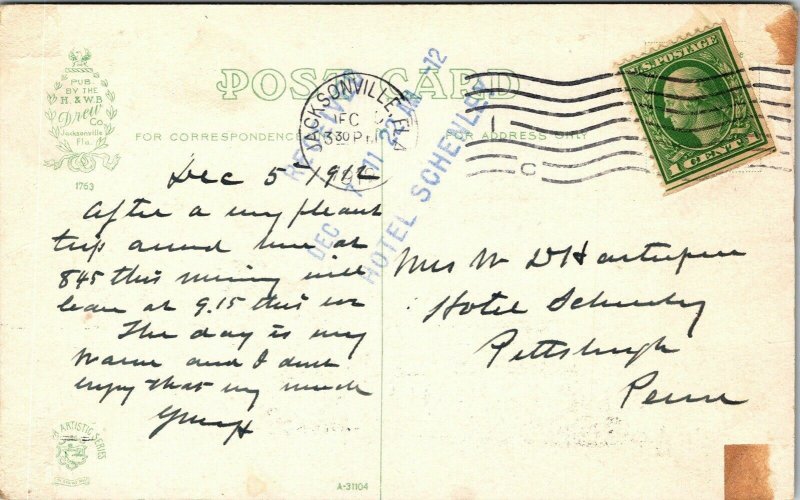 POST CARD
PUB
BY THE
H. & W.B.
Drew
Co.
Jacksonville
Fla.
1763
FOR CORRESPONDENCE
FOR ADDRESS ONLY
JACKSONVILLE, FLA.
DEC
330 PM
RECEIVED
DEC 7 11 24 AM '12
HOTEL SCHENLEY
U.S. POSTAGE
1 CENT 1
C
Dec 5 1912
After a very pleasant
trip arrived here at
845 this morning will
leave at 9.15 this eve
The day is very
warm and I dont
enjoy that very much
Mrs W D
Hotel Schenley
Pittsburgh
Penna
ARTISTIC SERIES
A-31104